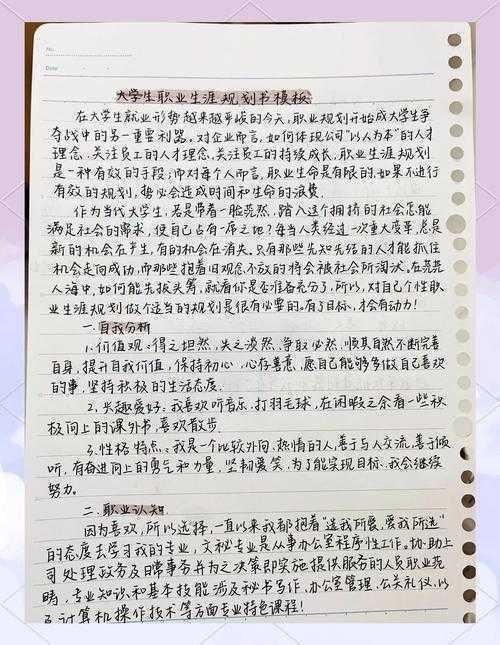 No.
Date
大学生职业生涯规划书模板
在大学生就业形势越来越严峻的今天,职业规划开始成大学生争
夺战中的另一重要利器。对企业而言,如何体现公司“以人为本”的人才
理念,关注员工的人才理念,关注员工的持续成长,职业生涯规划
是一种有效的手段;而对每个人而言,职业生命是有限的,如果不进行
有效的规划,势必会造成时间和生命的浪费。
作为当代大学生,若是带着一脸茫然,踏入这个拥挤的社会怎能
满足社会的需求,使自己占有一席之地?每当人类经过一次重大变革,总是
新的机会在产生,有的机会在消失。只有那些先知先结的人才能抓住
机会走向成功,而那些抱着旧观念不放的将会被社会所淘汰。在茫茫
人海中,如何能先拔头筹,就看你是否准备充分了,所以,对自己个性职
业生涯规划做个适当的规划是很有必要的。有了目标,才会有动力!
一.自我分析
1.价值观:得之坦然,失之淡然,争取必然,顺其自然不断完善
自身,提升自我价值,保持初心,心存善意,愿自己能够多做自己喜欢
的事,坚持积极的生活态度。
2.兴趣爱好:我喜欢听音乐,打羽毛球,在闲暇之余看一些积
极向上的课外书,喜欢散步
3.性格特点:我是一个比较外向,热情的人,善于与人交流,善于倾
听,有奋进向上的勇气和力量,坚韧爱笑,为了能实现目标,我会继续
努力。
二.职业认知
因为喜欢,所以选择,一直以来我都抱着“选我所爱,爱我所选”
的态度去学习我的专业,文秘专业是从事办公室程序性工作。协助上
司处理政务及日常事务并为之决策即实施提供服务的人员职业范
畴,专业知识和基本技能涉及秘书写作,办公室管理,公关礼仪,以
及计算机操作技术等方面专业特色课程!